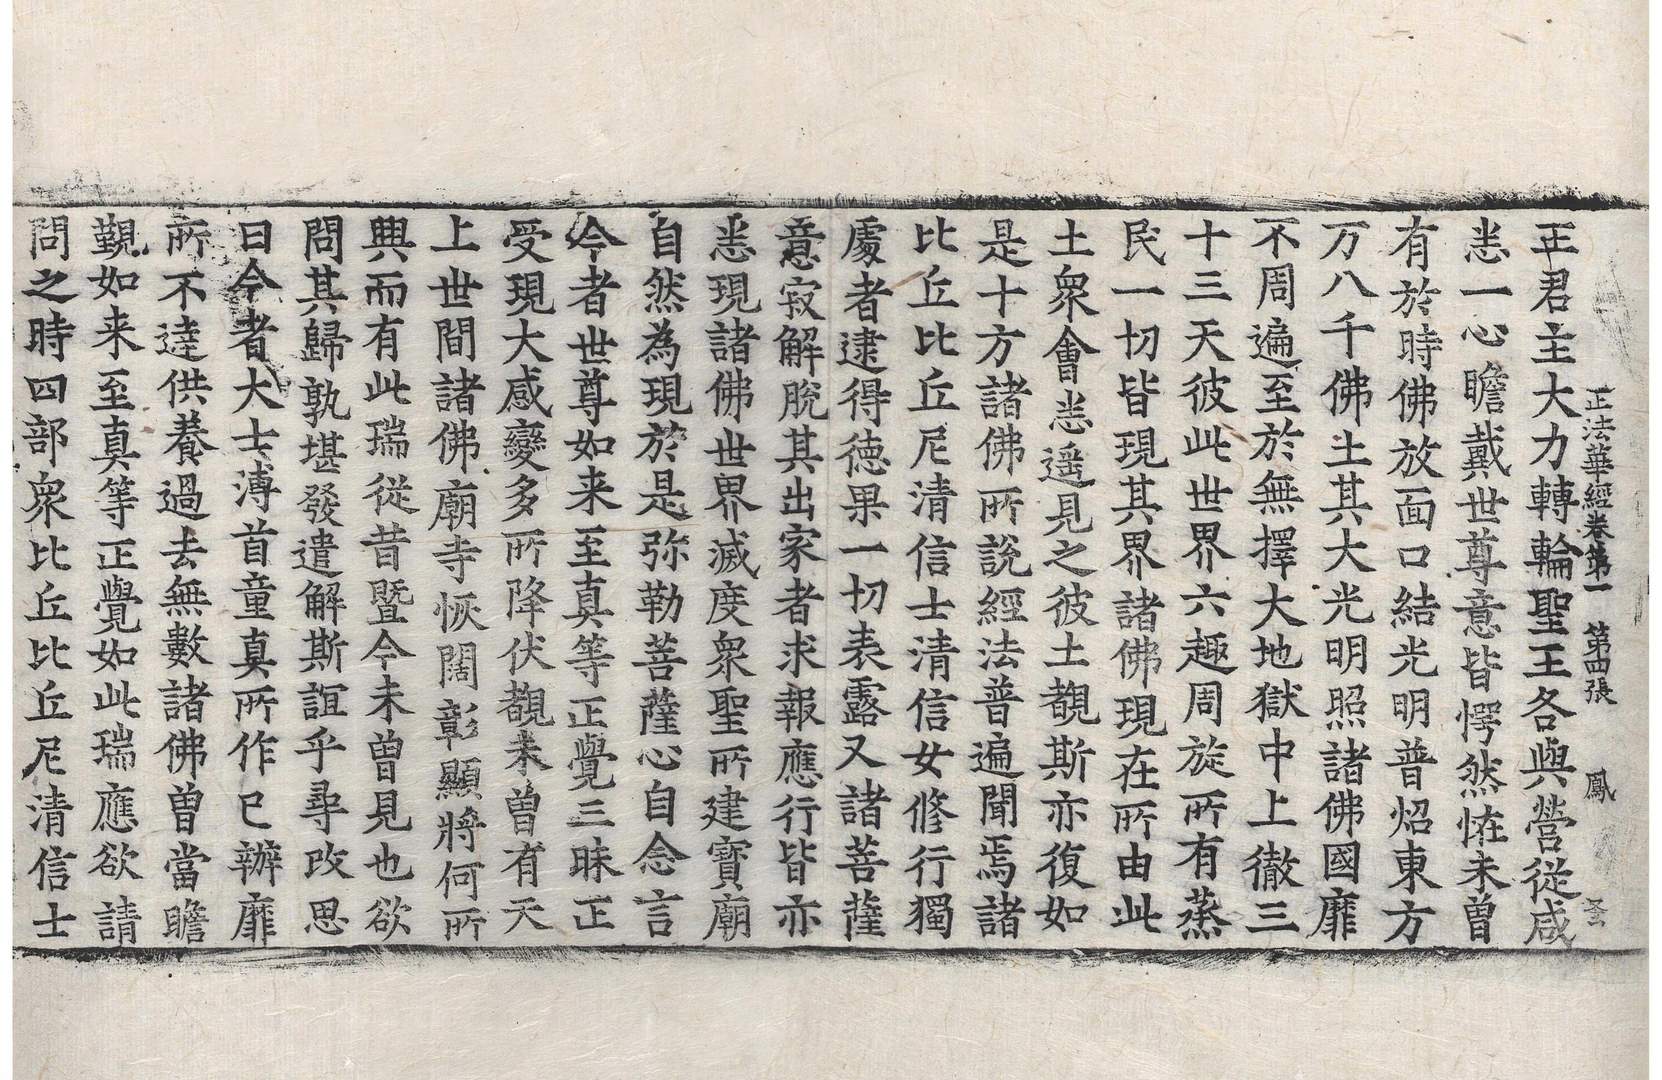 正法華經卷第一　第四張　鳳
王君主大力轉輪聖王各與營從咸
恙一心瞻戴世尊意皆愕然恠未曾
有於時佛放面口結光明普炤東方
万八千佛土其大光明照諸佛國靡
不周遍至於無擇大地獄中上徹三
十三天彼此世界六趣周旋所有蒸
民一切皆現其界諸佛現在所由此
土衆會恙遥見之彼土覩斯亦復如
是十方諸佛所說經法普遍聞焉諸
比丘比丘尼清信士清信女修行獨
處者逮得德果一切表露又諸菩薩
意寂解脫其出家者求報應行皆亦
恙現諸佛世界滅度衆聖所建寶廟
自然為現於是弥勒菩薩心自念言
今者世尊如来至真等正覺三昧正
受現大感變多所降伏覩未曾有天
上世間諸佛廟寺恢闊彰顯將何所
興而有此瑞從昔暨今未曾見也欲
問其歸孰堪發遣解斯誼乎尋改思
曰今者大士溥首童真所作已辦靡
所不達供養過去無數諸佛曾當瞻
覲如来至真等正覺如此瑞應欲請
問之時四部衆比丘比丘尼清信士